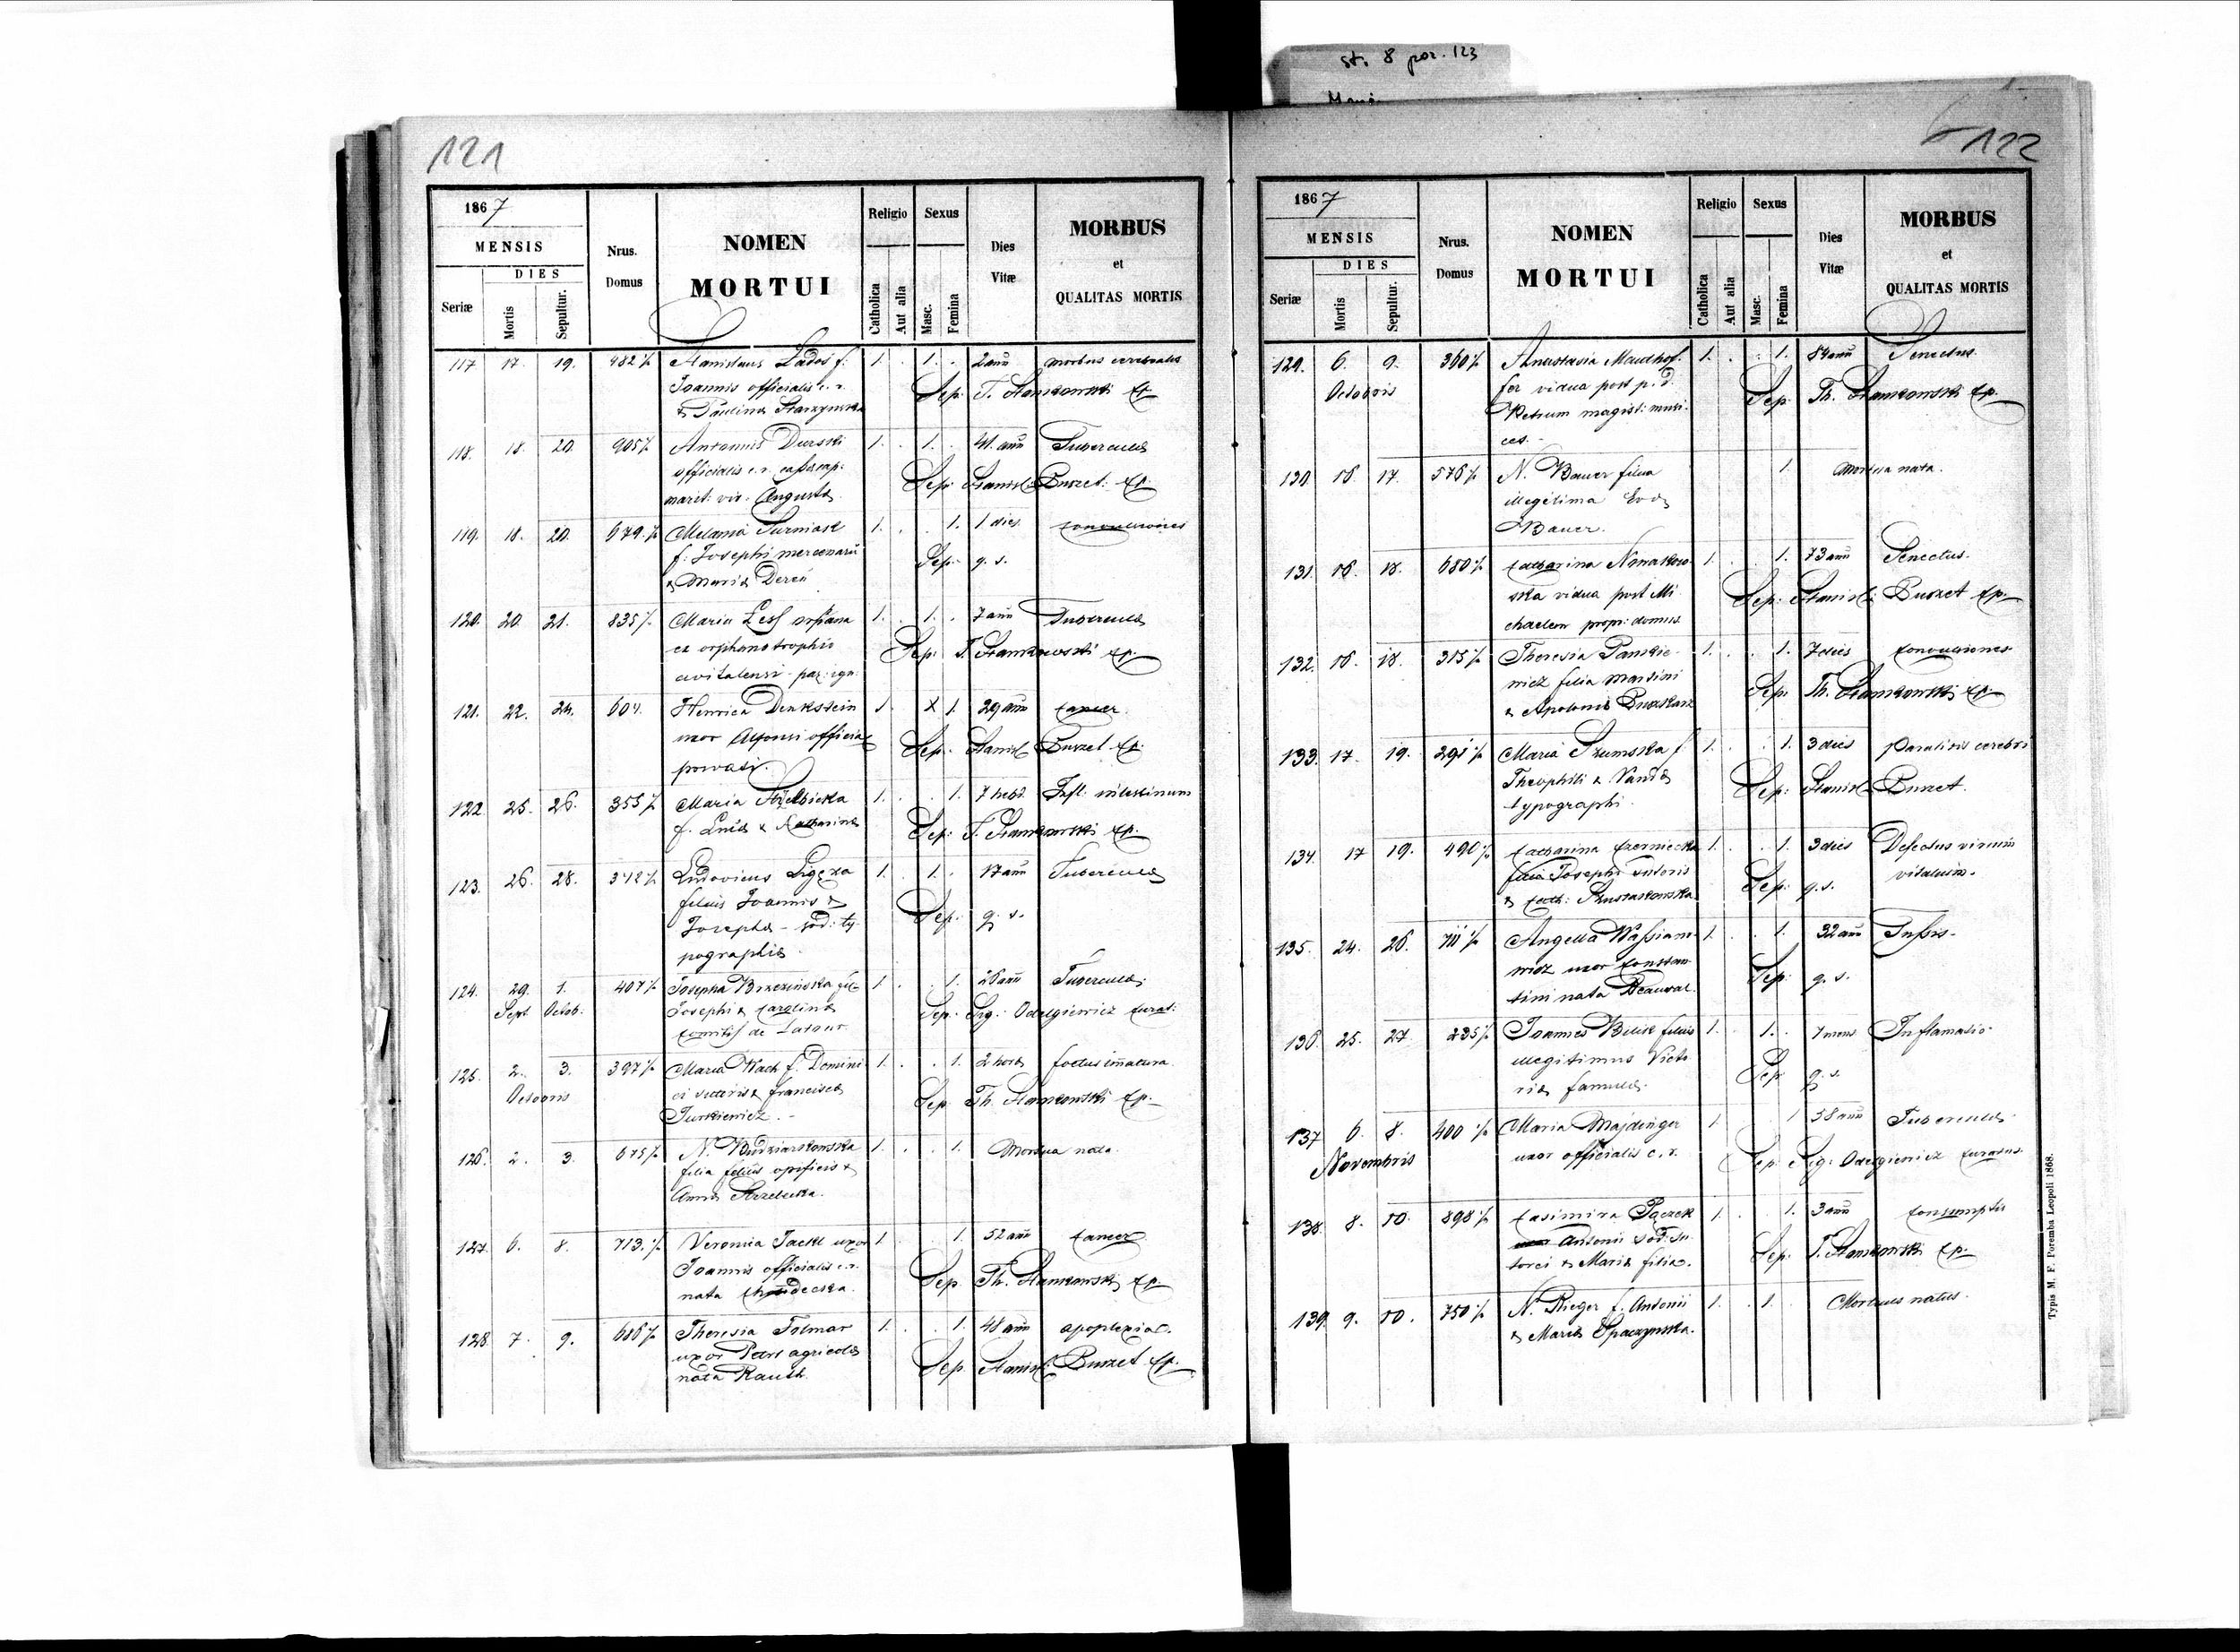 st. 8 por. 123
121
1867
MENSIS
DIES
Seriæ
Mortis
Sepultur.
Nrus. Domus
NOMEN
MORTUI
Religio
Catholica
Aut alia
Sexus
Masc.
Femina
Dies
Vitæ
MORBUS
et
QUALITAS MORTIS
117 17. 19. 982 Stanislaus Lados f. 1. . 1. . 2 ann morbus cerebralis
Joannis officialis c. r. Sep: T. Stankowski Cp.
& Paulina Starzynska
118. 18. 20. 905 Antonius Durski 1. . 1. . 41. ann Tubercula
officialis c. r. Sep: Stanisl: Buszet: Cp.
marit: vir. Augusta
119. 18. 20. 679. Melania 1. . . 1. 1 dies convulsiones
f. Josephi mercenarii Sep. q. s.
& Maria Dereń
120. 20. 21. 835 Maria Lesf orphana 1. . 1. . 7 ann Tubercula
ex orphanotrophio Sep: T. Stankowski Cp.
121. 22. 24. 604. Henrica Denkstein 1. X 1. 29 ann Cancer.
uxor Alfonsi officia Sep. Stanisl Buszet Cp.
privati.
122. 25. 26. 355 Maria Strzelbicka 1. . . 1. 7 hebd. Infl. intestinum
f. Luca & Katharina Sep. T. Stankowski Cp.
123. 26. 28. 342 Ludovicus Ligęza 1. . 1. . 17 ann Tubercula
filius Joannis & Sep: q. s.
Josepha - sod: ty-
pographia
124. 29. 1. 407 Josepha Brzezinska fil 1. . . 1. 26 ann Tubercula
Sept. Octob. Josephi & Carolina Sep. Sig: Odelgiewicz Curat:
Comitis de Latour
125. 2. 3. 397 Maria Wach f. Domini- 1. . . 1. 2 hora foetus immatura
Octobris ci sutoris & Francisca Sep Th. Stankowski Cp.
Turkiewicz.
126. 2. 3. 675 N. Budziarkowska 1. . . 1. Mortua nata
filia opificis &
Anna Strzelecka.
127. 6. 8. 713. Veronica Jackl uxor 1. . . 1. 52 ann Cancer
Joannis officialis c. r. Sep Th. Stankowski Cp
nata
128 7. 9. 616 Theresia Folmar 1. . . 1. 48 ann apoplexia.
uxor Petri agricola Sep Stanisl: Buszet Cp.
nata Rauth.
122
1867
MENSIS
DIES
Seriæ
Mortis
Sepultur.
Nrus. Domus
NOMEN
MORTUI
Religio
Catholica
Aut alia
Sexus
Masc.
Femina
Dies
Vitæ
MORBUS
et
QUALITAS MORTIS
129. 6. 9. 360 Anastasia Mauthof- 1. . . 1. 84 ann Senectus.
Octobris fer vidua post p. d. Sep. Th. Stankowski Cp.
Petrum magist: musi-
ces.
130 16. 17. 576 N. Bauer filia 1. Mortua nata.
illegitima Eva
Bauer.
131. 16. 18. 680 Catharina Nowakow- 1. . . 1. 73 ann Senectus.
ska vidua post Mi- Sep: Stanisl: Buszet Cp.
chaelem propr: domus.
132. 16. 18. 315 Theresia Pankie- 1. . . 1. 7 dies Convulsiones
wicz filia Martini Sep: Th. Stankowski Cp.
& Apolonia
133. 17. 19. 291 Maria Szumska f 1. . . 1. 3 dies Paralisis cerebri
Theophili & Vanda Sep: Stanisl: Buszet.
typographi.
134. 17 19. 490 Catharina Czerniecka 1. . . 1. 3 dies Defectus virium
filia Josephi sutoris Sep: q. s. vitalium.
& Cath:
135. 24. 26. 711 Angella 1. . . 1. 32 ann Tussis.
wicz uxor Constan- Sep. q. s.
tini nata Beauval.
136. 25. 27. 235 Joannes Bilik filius 1. . 1. . 7 mens Inflamatio
illegitimus Victo- Sep q. s.
ria famula.
137 6. 8. 400 Maria Majdinger 1 . . 1 58 ann Tubercula
Novembris uxor officialis c. r. Sep. Sig: Odelgiewicz Curatus.
138. 8. 10. 898 Casimira Pączek 1. . . 1. 3 ann Consumptio
Antonii sod: su- Sep. T. Stankowski Cp.
toris & Maria filia.
139. 9. 10. 750 N. Rieger f. Antonii 1. . 1. Mortuus natus.
& Maria Spaczynska.
Typis M. F. Poremba Leopoli 1868.